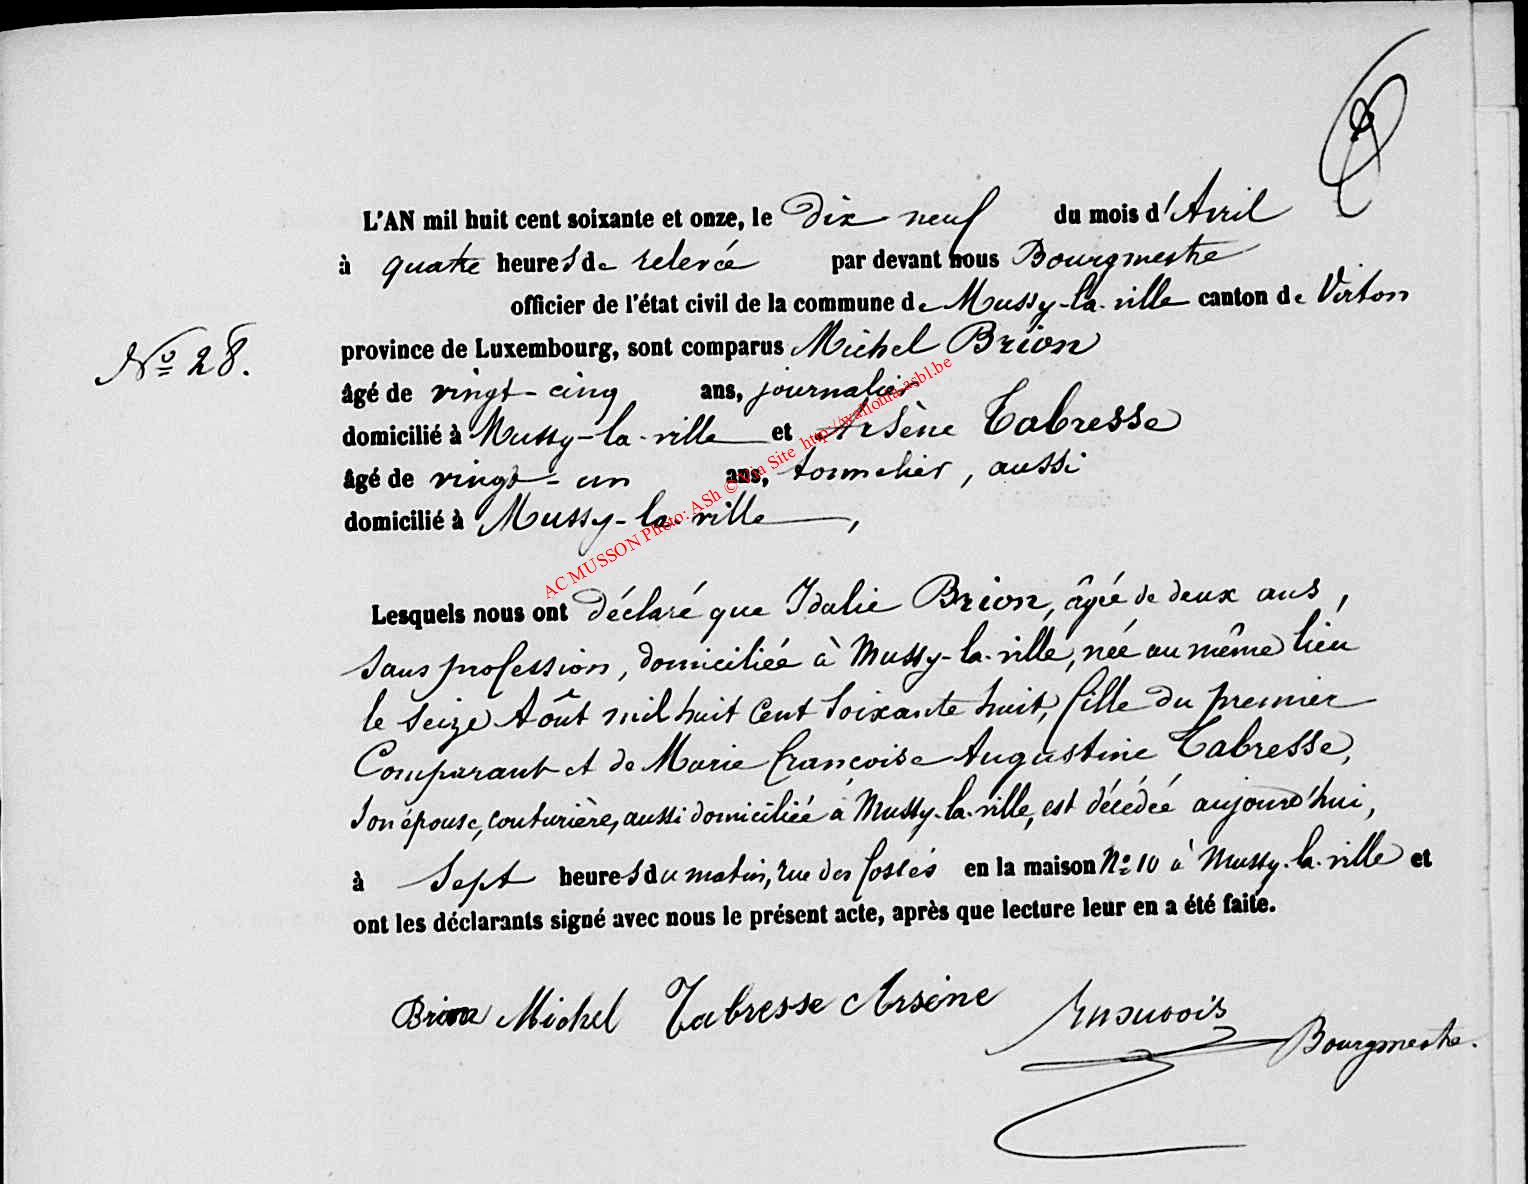 L'AN mil huit cent soixante et onze, le Dix neuf du mois d'Avril
à quatre heures de relevée par devant nous Bourgmestre
officier de l'état civil de la commune de Mussy-la-ville canton de Virton
N° 28.
province de Luxembourg, sont comparus Michel Brion
âgé de vingt-cinq ans, journalier
domicilié à Mussy-la-ville et Arsène Tabresse
âgé de vingt-un ans, tonnelier, aussi
domicilié à Mussy-la-ville,
AC MUSSON Photo: ASh © Via Site http://wallonia.asbl.be
Lesquels nous ont déclaré que Idalie Brion, âgée de deux ans,
sans profession, domiciliée à Mussy-la-ville, née au même lieu
le seize Août mil huit cent soixante huit, fille du premier
Comparant et de Marie françoise Augustine Tabresse,
son épouse, couturière, aussi domiciliée à Mussy-la-ville, est décédée aujourd'hui,
à Sept heures du matin, rue des fossés en la maison N° 10 à Mussy-la-ville et
ont les déclarants signé avec nous le présent acte, après que lecture leur en a été faite.
Brion Michel Tabresse Arsène
Bourgmestre.